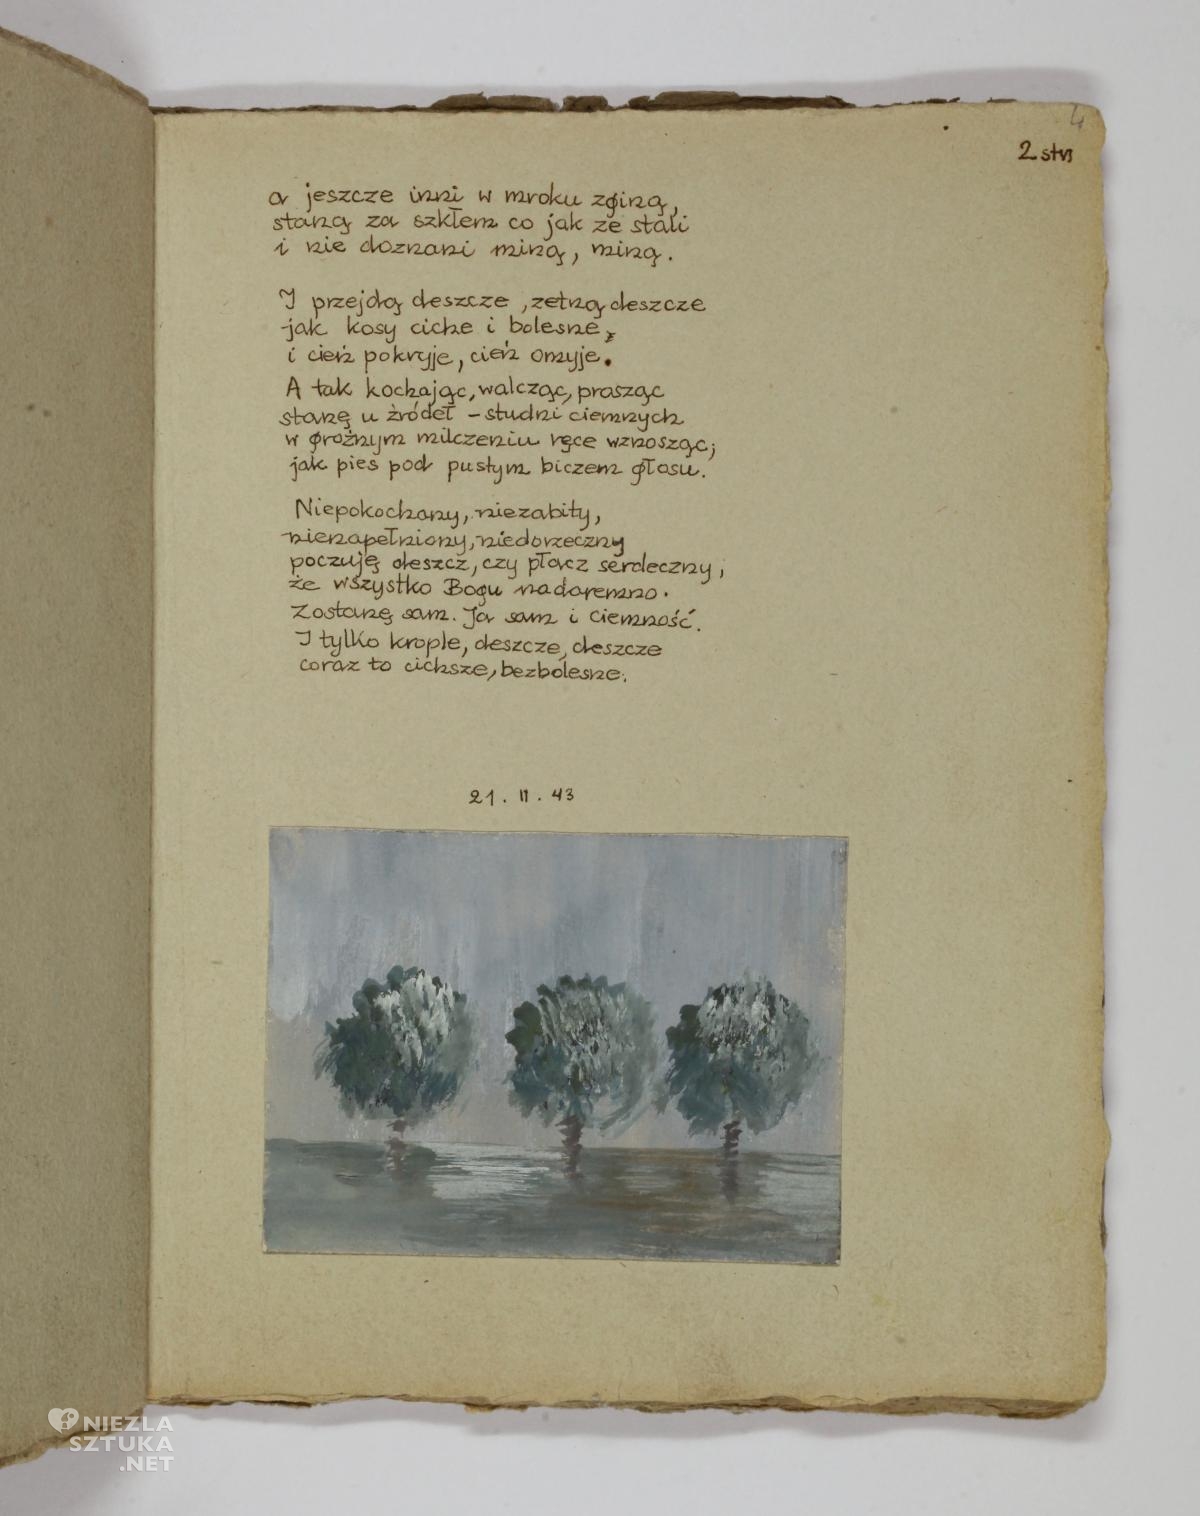 4
2 str
a jeszcze inni w mroku zginą,
staną za szkłem co jak ze stali
i nie doznani miną, miną.
I przejdą deszcze, zetną deszcze
jak kosy ciche i bolesne,
i cień pokryje, cień omyje.
A tak kochając, walcząc, prosząc
stanę u źródeł – studni ciemnych
w groźnym milczeniu ręce wznosząc;
jak pies pod pustym biczem głosu.
Niepokochany, niezabity,
nienapełniony, niedorzeczny
poczuję deszcz, czy płacz serdeczny,
że wszystko Bogu nadaremno.
Zostanę sam. Ja sam i ciemność.
I tylko krople, deszcze, deszcze
coraz to cichsze, bezbolesne.
21. II. 43
NIEZLA
SZTUKA
.NET